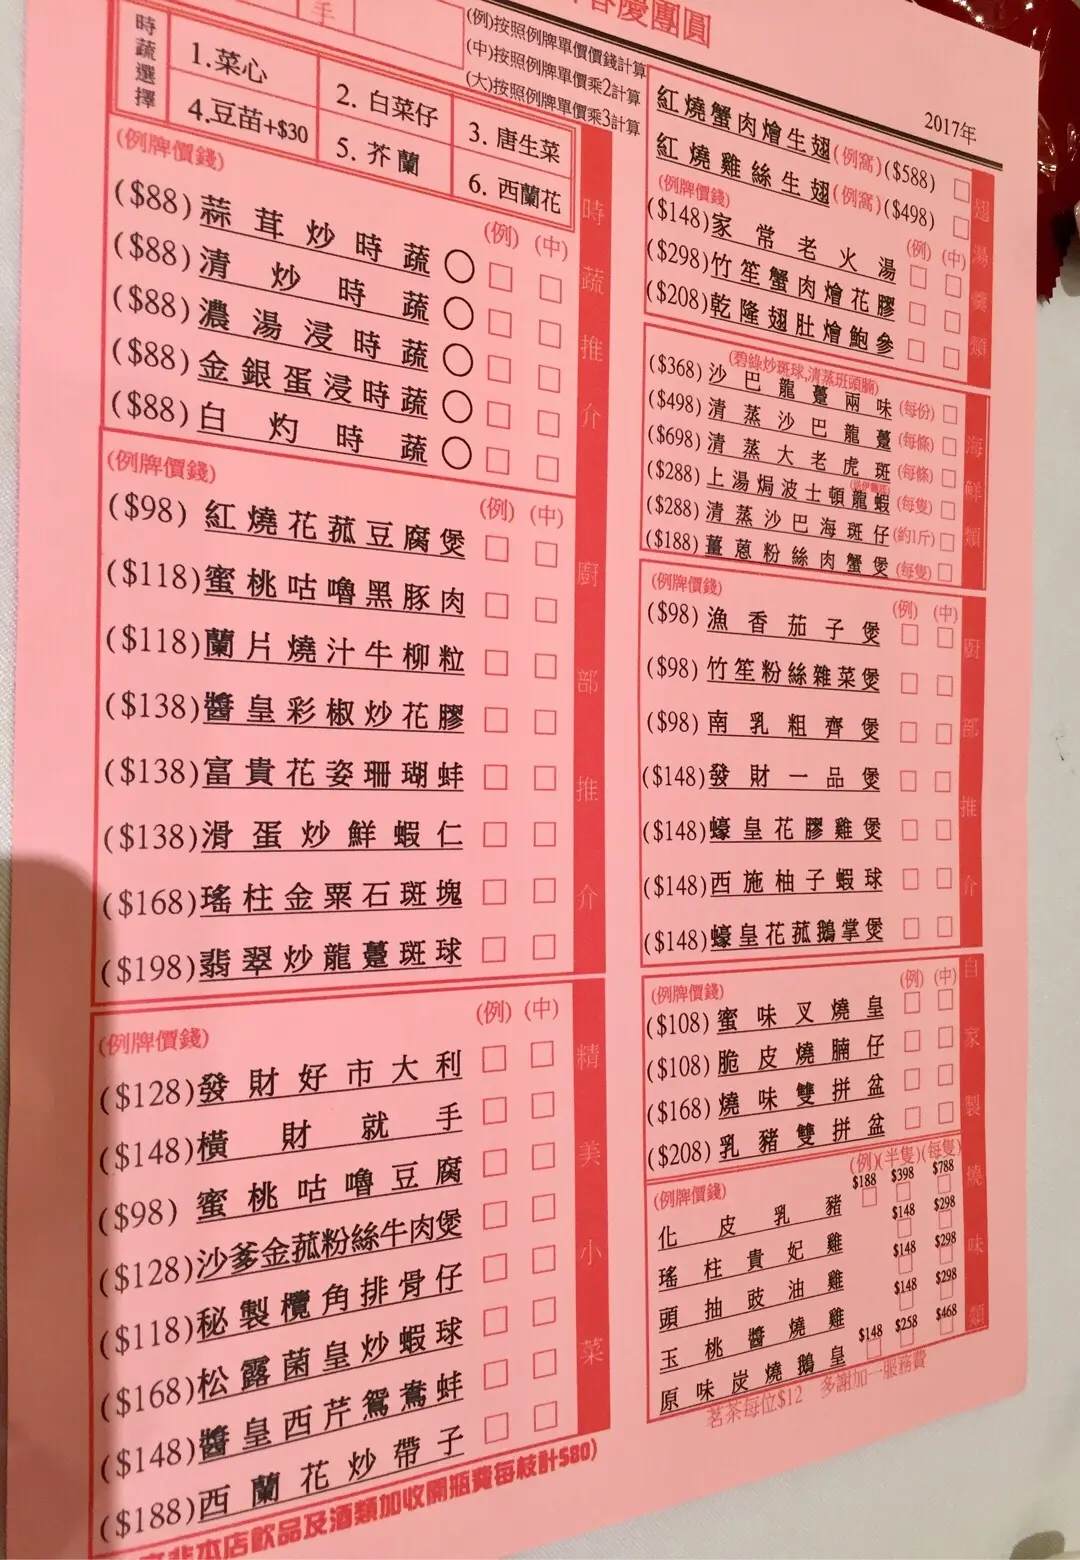 慶團圓
手
(例)按照例牌單價價錢計算
(中)按照例牌單價乘2計算
(大)按照例牌單價乘3計算
2017年
時蔬選擇
1.菜心
2. 白菜仔
3. 唐生菜
4.豆苗+$30
5. 芥蘭
6. 西蘭花
時蔬推介
(例牌價錢)
(例) (中)
($88) 蒜茸炒時蔬
($88) 清炒時蔬
($88) 濃湯浸時蔬
($88) 金銀蛋浸時蔬
($88) 白灼時蔬
廚部推介
(例牌價錢)
(例) (中)
($98) 紅燒花菰豆腐煲
($118) 蜜桃咕嚕黑豚肉
($118) 蘭片燒汁牛柳粒
($138) 醬皇彩椒炒花膠
($138) 富貴花姿珊瑚蚌
($138) 滑蛋炒鮮蝦仁
($168) 瑤柱金粟石斑塊
($198) 翡翠炒龍躉斑球
精美小菜
(例牌價錢)
(例) (中)
($128) 發財好市大利
($148) 橫財就手
($98) 蜜桃咕嚕豆腐
($128) 沙爹金菰粉絲牛肉煲
($118) 秘製欖角排骨仔
($168) 松露菌皇炒蝦球
($148) 醬皇西芹鴛鴦蚌
($188) 西蘭花炒帶子
非本店飲品及酒類加收開瓶費每枝計$80)
翅湯羹類
紅燒蟹肉燴生翅(例窩)($588)
紅燒雞絲生翅(例窩)($498)
(例牌價錢)
(例) (中)
($148) 家常老火湯
($298) 竹笙蟹肉燴花膠
($208) 乾隆翅肚燴鮑參
海鮮類
(碧綠炒斑球,清蒸班頭腩)
($368) 沙巴龍躉兩味 (每份)
($498) 清蒸沙巴龍躉 (每條)
($698) 清蒸大老虎斑 (每條)
($288) 上湯焗波士頓龍蝦 (每隻)
($288) 清蒸沙巴海斑仔 (約1斤)
($188) 薑蔥粉絲肉蟹煲 (每隻)
廚部推介
(例牌價錢)
(例) (中)
($98) 漁香茄子煲
($98) 竹笙粉絲雜菜煲
($98) 南乳粗齊煲
($148) 發財一品煲
($148) 蠔皇花膠雞煲
($148) 西施柚子蝦球
($148) 蠔皇花菰鵝掌煲
自家製燒味類
(例牌價錢)
(例) (中)
($108) 蜜味叉燒皇
($108) 脆皮燒腩仔
($168) 燒味雙拼盆
($208) 乳豬雙拼盆
(例牌價錢)
(例)(半隻)(每隻)
化皮乳豬 $188 $398 $788
瑤柱貴妃雞 $148 $298
頭抽豉油雞 $148 $298
玉桃醬燒雞 $148 $298
原味炭燒鵝皇 $148 $258 $468
茗茶每位$12 多謝加一服務費